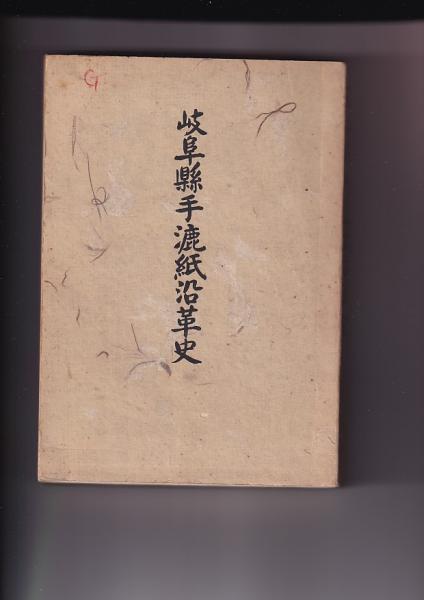 G
岐阜縣手漉紙沿革史